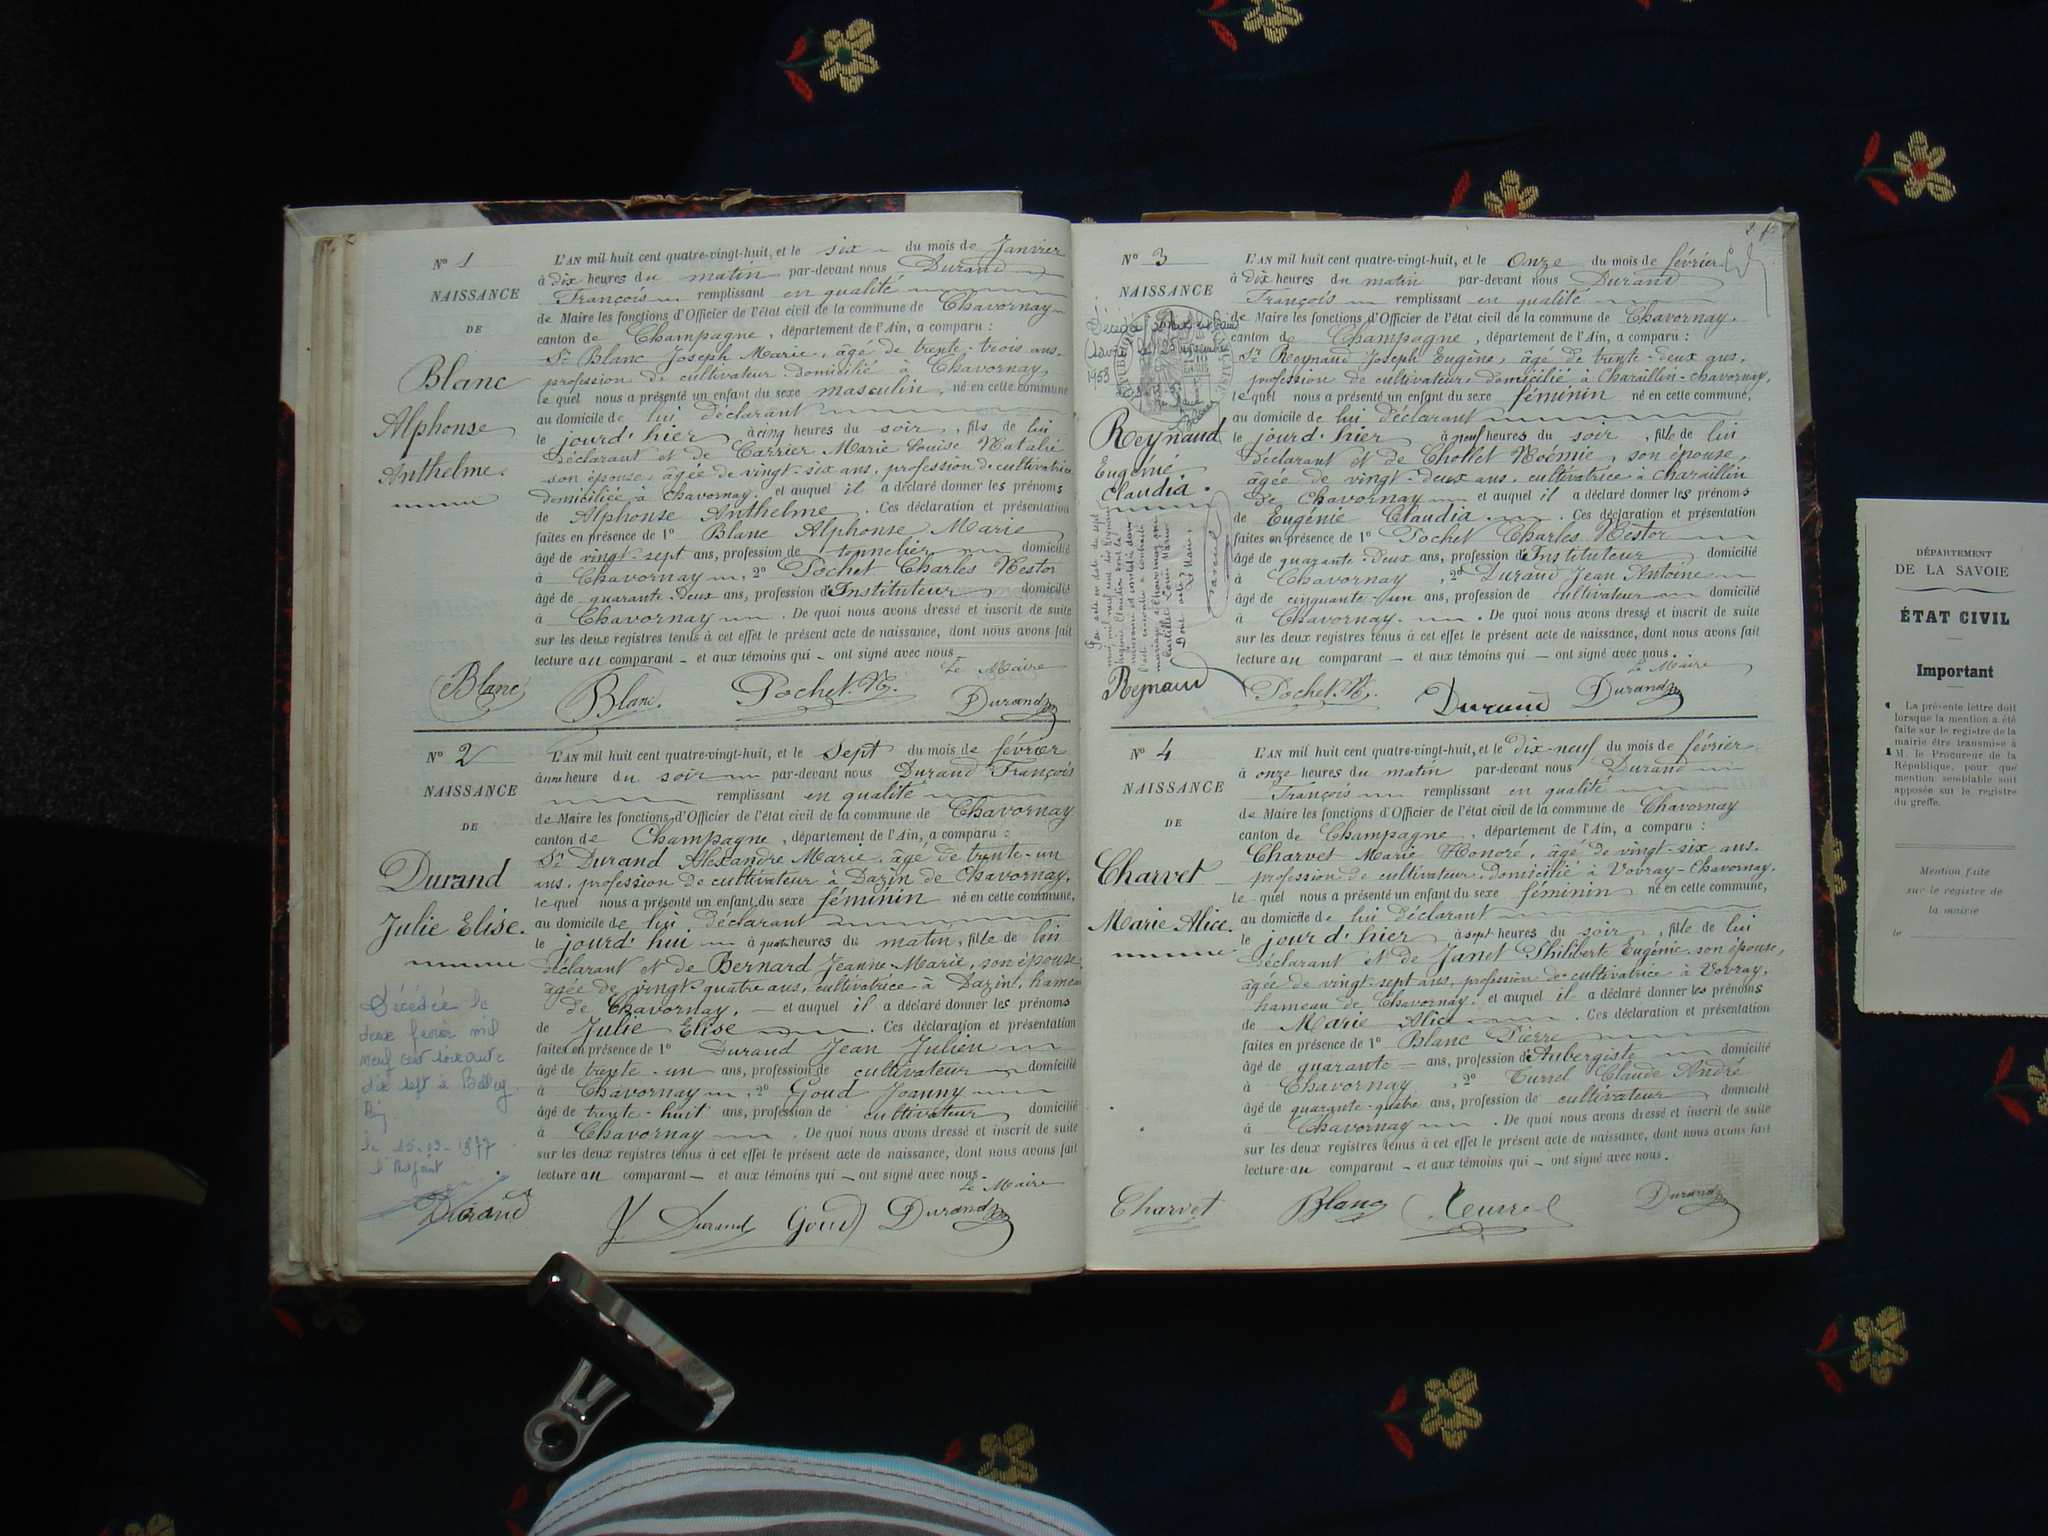 N° 1
NAISSANCE
DE
Blanc
Alphonse
Anthelme.
L'AN mil huit cent quatre-vingt-huit, et le six du mois de Janvier
à dix heures du matin par-devant nous Durand
François remplissant en qualité
de Maire les fonctions d'Officier de l'état civil de la commune de Chavornay
canton de Champagne, département de l'Ain, a comparu :
Sr Blanc Joseph Marie, âgé de trente-trois ans.
profession de cultivateur domicilié à Chavornay,
lequel nous a présenté un enfant du sexe masculin, né en cette commune
au domicile de lui déclarant
le jourd'hier à cinq heures du soir, fils de lui
déclarant et de Carrier Marie Louise Natalie
son épouse, âgée de vingt-six ans, profession de cultivatrice
domiciliée à Chavornay. et auquel il a déclaré donner les prénoms
de Alphonse Anthelme. Ces déclaration et présentation
faites en présence de 1° Blanc Alphonse Marie
âgé de vingt-sept ans, profession de tonnelier domicilié
à Chavornay, 2° Pochet Charles Nestor
âgé de quarante-deux ans, profession d'Instituteur domicilié
à Chavornay. De quoi nous avons dressé et inscrit de suite
sur les deux registres tenus à cet effet le présent acte de naissance, dont nous avons fait
lecture au comparant et aux témoins qui ont signé avec nous
Le Maire
Blanc Blanc. Pochet. N. Durand
N° 2
NAISSANCE
DE
Durand
Julie Elise.
Décédée le
deux février mil
neuf cent soixante
dix sept à Belley
le 15-03-1977
L'an mil huit cent quatre-vingt-huit, et le Sept du mois de février
à une heure du soir par-devant nous Durand François
remplissant en qualité
de Maire les fonctions d'Officier de l'état civil de la commune de Chavornay
canton de Champagne, département de l'Ain, a comparu :
Sr Durand Alexandre Marie, âgé de trente-un
ans, profession de cultivateur à Dazin de Chavornay,
lequel nous a présenté un enfant du sexe féminin né en cette commune,
au domicile de lui déclarant
le jourd'hui à quatre heures du matin, fille de lui
déclarant et de Bernard Jeanne-Marie, son épouse
âgée de vingt-quatre ans, cultivatrice à Dazin, hameau
de Chavornay. et auquel il a déclaré donner les prénoms
de Julie Elise. Ces déclaration et présentation
faites en présence de 1° Durand Jean Julien
âgé de trente-un ans, profession de cultivateur domicilié
à Chavornay, 2° Goud Joanny
âgé de trente-huit ans, profession de cultivateur domicilié
à Chavornay. De quoi nous avons dressé et inscrit de suite
sur les deux registres tenus à cet effet le présent acte de naissance, dont nous avons fait
lecture au comparant et aux témoins qui ont signé avec nous
Le Maire
Durand J. Durand Goud Durand
N° 3
NAISSANCE
1953
Reynaud
Eugénie
Claudia.
L'AN mil huit cent quatre-vingt-huit, et le Onze du mois de février
à dix heures du matin par-devant nous Durand
François remplissant en qualité
de Maire les fonctions d'Officier de l'état civil de la commune de Chavornay.
canton de Champagne, département de l'Ain, a comparu :
Sr Reynaud Joseph Eugène, âgé de trente-deux ans,
profession de cultivateur domicilié à Charaillin-chavornay,
lequel nous a présenté un enfant du sexe féminin né en cette commune,
au domicile de lui déclarant
le jourd'hier à neuf heures du soir, fille de lui
déclarant et de Chollet Noémie, son épouse,
âgée de vingt-deux ans, cultivatrice à Charaillin
de Chavornay et auquel il a déclaré donner les prénoms
de Eugénie Claudia. Ces déclaration et présentation
faites en présence de 1° Pochet Charles Nestor
âgé de quarante-deux ans, profession d'Instituteur domicilié
à Chavornay, 2° Durand Jean Antoine
âgé de cinquante-un ans, profession de cultivateur domicilié
à Chavornay. De quoi nous avons dressé et inscrit de suite
sur les deux registres tenus à cet effet le présent acte de naissance, dont nous avons fait
lecture au comparant et aux témoins qui ont signé avec nous
Le Maire
Reynaud Pochet. N. Durand Durand
N° 4
NAISSANCE
DE
Charvet
Marie Alice.
L'AN mil huit cent quatre-vingt-huit, et le dix-neuf du mois de février
à onze heures du matin par-devant nous Durand
François remplissant en qualité
de Maire les fonctions d'Officier de l'état civil de la commune de Chavornay
canton de Champagne, département de l'Ain, a comparu :
Charvet Marie Honoré, âgé de vingt-six ans.
profession de cultivateur domicilié à Vovray-Chavornay.
lequel nous a présenté un enfant du sexe féminin né en cette commune,
au domicile de lui déclarant
le jourd'hier à sept heures du soir, fille de lui
déclarant et de Janet Philiberte Eugénie son épouse,
âgée de vingt-sept ans, profession de cultivatrice à Vovray,
hameau de Chavornay. et auquel il a déclaré donner les prénoms
de Marie Alice. Ces déclaration et présentation
faites en présence de 1° Blanc Pierre
âgé de quarante ans, profession d'Aubergiste domicilié
à Chavornay, 2° Turrel Claude André
âgé de quarante-quatre ans, profession de cultivateur domicilié
à Chavornay. De quoi nous avons dressé et inscrit de suite
sur les deux registres tenus à cet effet le présent acte de naissance, dont nous avons fait
lecture au comparant et aux témoins qui ont signé avec nous.
Charvet Blanc Durand
DÉPARTEMENT
DE LA SAVOIE
ÉTAT CIVIL
Important
La présente lettre doit
lorsque la mention a été
faite sur le registre de la
mairie être transmise à
M. le Procureur de la
République, pour que
mention semblable soit
apposée sur le registre
du greffe.
Mention faite
sur le registre de
la mairie
le